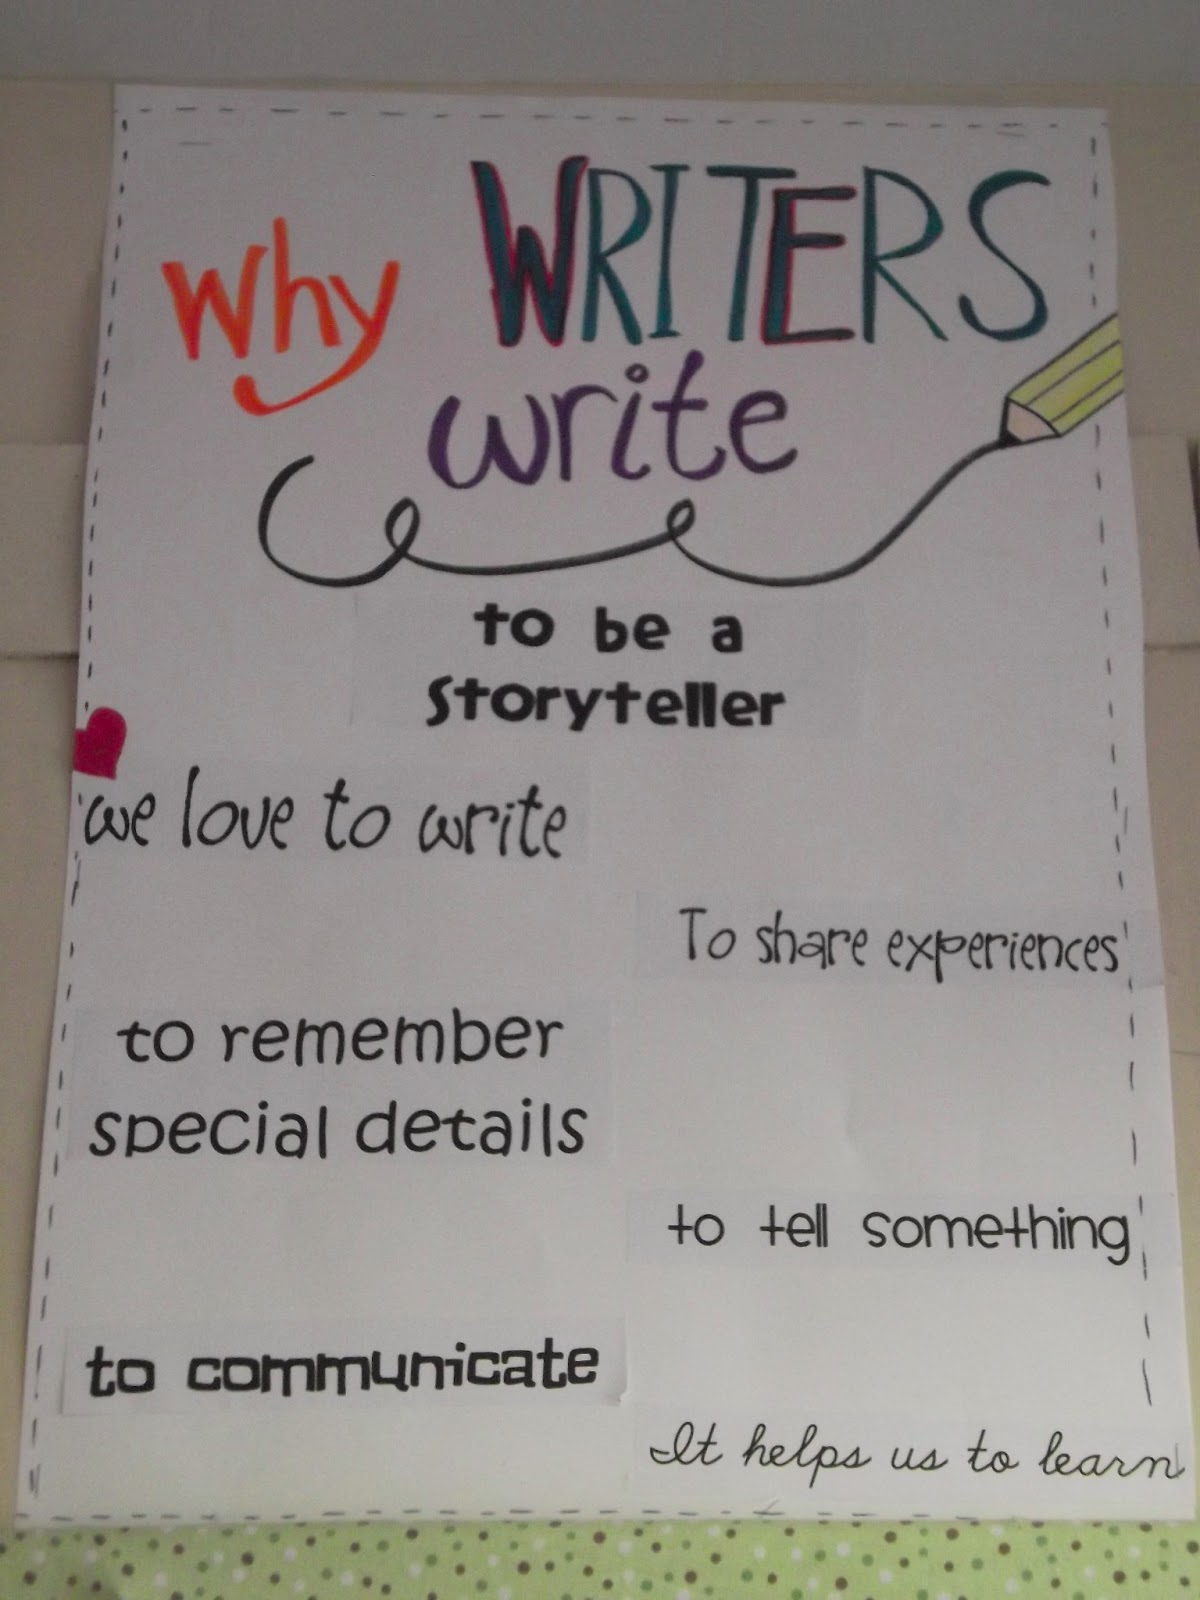 Why WRITERS
write
to be a
storyteller
we love to write
To share experiences
to remember
special details
to tell something
to communicate
It helps us to learn